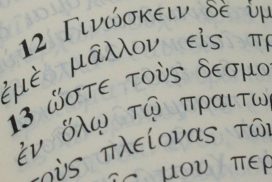 12 Γινώσκειν δὲ ὑμ
ἐμὲ μᾶλλον εἰς πρ
13 ὥστε τοὺς δεσμο
ἐν ὅλῳ τῷ πραιτω
τοὺς πλείονας τῶν
μου περ